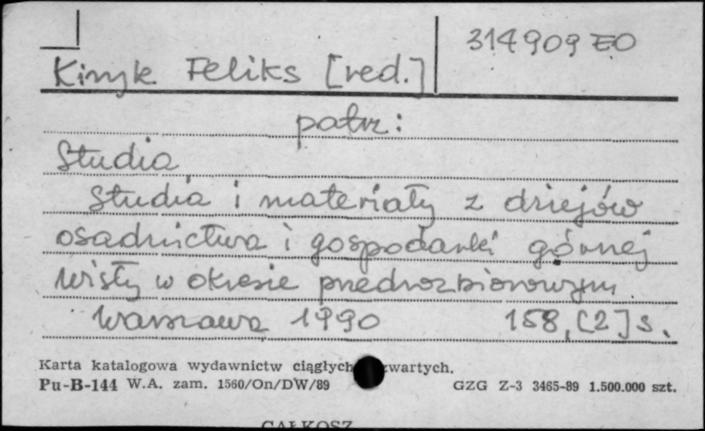 314909 EO
Kiryk Feliks [red.]
patrz:
Studia
Studia i materiały z dziejów
osadnictwa i gospodarki górnej
Wisły w okresie przedrozbiorowym.
Warszawa 1990 158, [2] s.
Karta katalogowa wydawnictw ciągłych zwartych.
Pu-B-144 W.A. zam. 1560/On/DW/89 GZG Z-3 3465-89 1.500.000 szt.